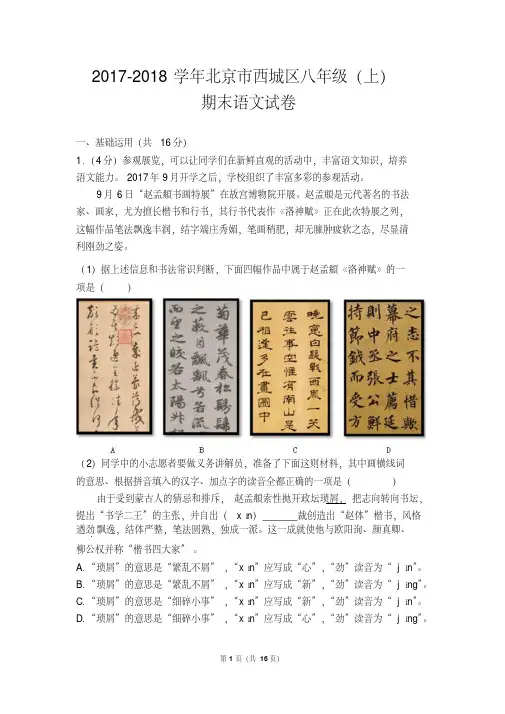 2017-2018 学年北京市西城区八年级（上）
期末语文试卷
一、基础运用（共 16分）
1.（4分）参观展览，可以让同学们在新鲜直观的活动中，丰富语文知识，培养
语文能力。2017年9月开学之后，学校组织了丰富多彩的参观活动。
9月6日“赵孟頫书画特展”在故宫博物院开展。赵孟頫是元代著名的书法
家、画家，尤为擅长楷书和行书，其行书代表作《洛神赋》正在此次特展之列，
这幅作品笔法飘逸丰润，结字端庄秀媚，笔画稍肥，却无臃肿疲软之态，尽显清
利刚劲之姿。
（1）据上述信息和书法常识判断，下面四幅作品中属于赵孟頫《洛神赋》的一
项是（ ）
菊華茂春松髣髴
之蔽月飄飄兮若流
而望之皎若太陽升
白髮戰西風一笑
雲往事空惟有南山足
已相逢多在畫圖中
之志不其惜歟
幕府之士薦延
則中丞張公鮮
持節鉞而受方
A B C D
（2）同学中的小志愿者要做义务讲解员，准备了下面这则材料，其中画横线词
的意思、根据拼音填入的汉字、加点字的读音全都正确的一项是（ ）
由于受到蒙古人的猜忌和排斥， 赵孟頫索性抛开政坛琐屑， 把志向转向书坛，
提出“书学二王”的主张，并自出（ xın）_______裁创造出“赵体”楷书，风格
遒劲飘逸，结体严整，笔法圆熟，独成一派。这一成就使他与欧阳询、颜真卿、
柳公权并称“楷书四大家”。
A. “琐屑”的意思是“繁乱不屑”，“xın”应写成“心”，“劲”读音为“ jın”。
B. “琐屑”的意思是“繁乱不屑”，“xın”应写成“新”，“劲”读音为“ jıng”。
C. “琐屑”的意思是“细碎小事”，“xın”应写成“新”，“劲”读音为“ jın”。
D. “琐屑”的意思是“细碎小事”，“xın”应写成“心”，“劲”读音为“ jıng”。
第1页（共16页）